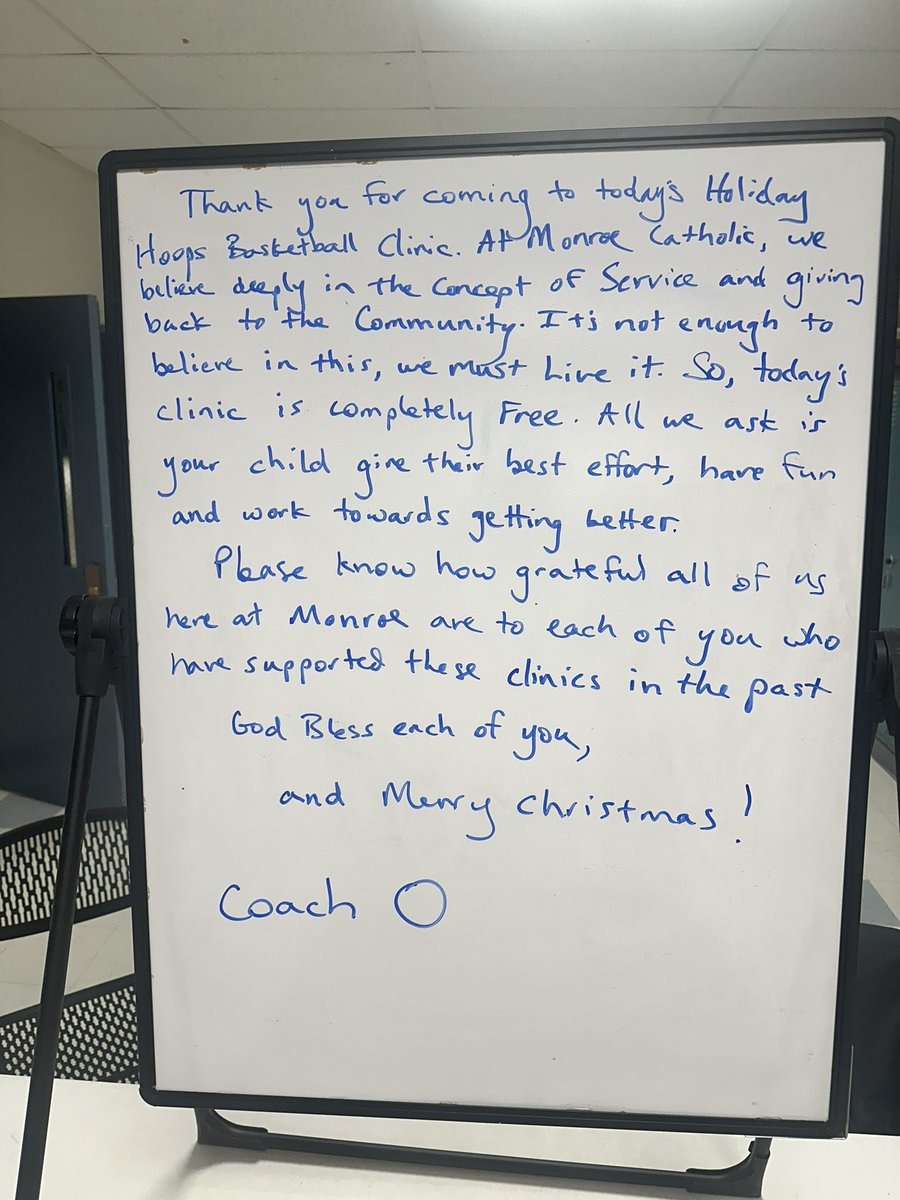 Thank you for coming to today's Holiday
Hoops Basketball Clinic. At Monroe Catholic, we
believe deeply in the Concept of Service and giving
back to the Community. It's not enough to
believe in this, we must Live it. So, today's
clinic is completely Free. All we ask is
your child give their best effort, have fun
and work towards getting better.
Please know how grateful all of us
here at Monroe are to each of you who
have supported these clinics in the past
God Bless each of you,
and Merry Christmas!
Coach O